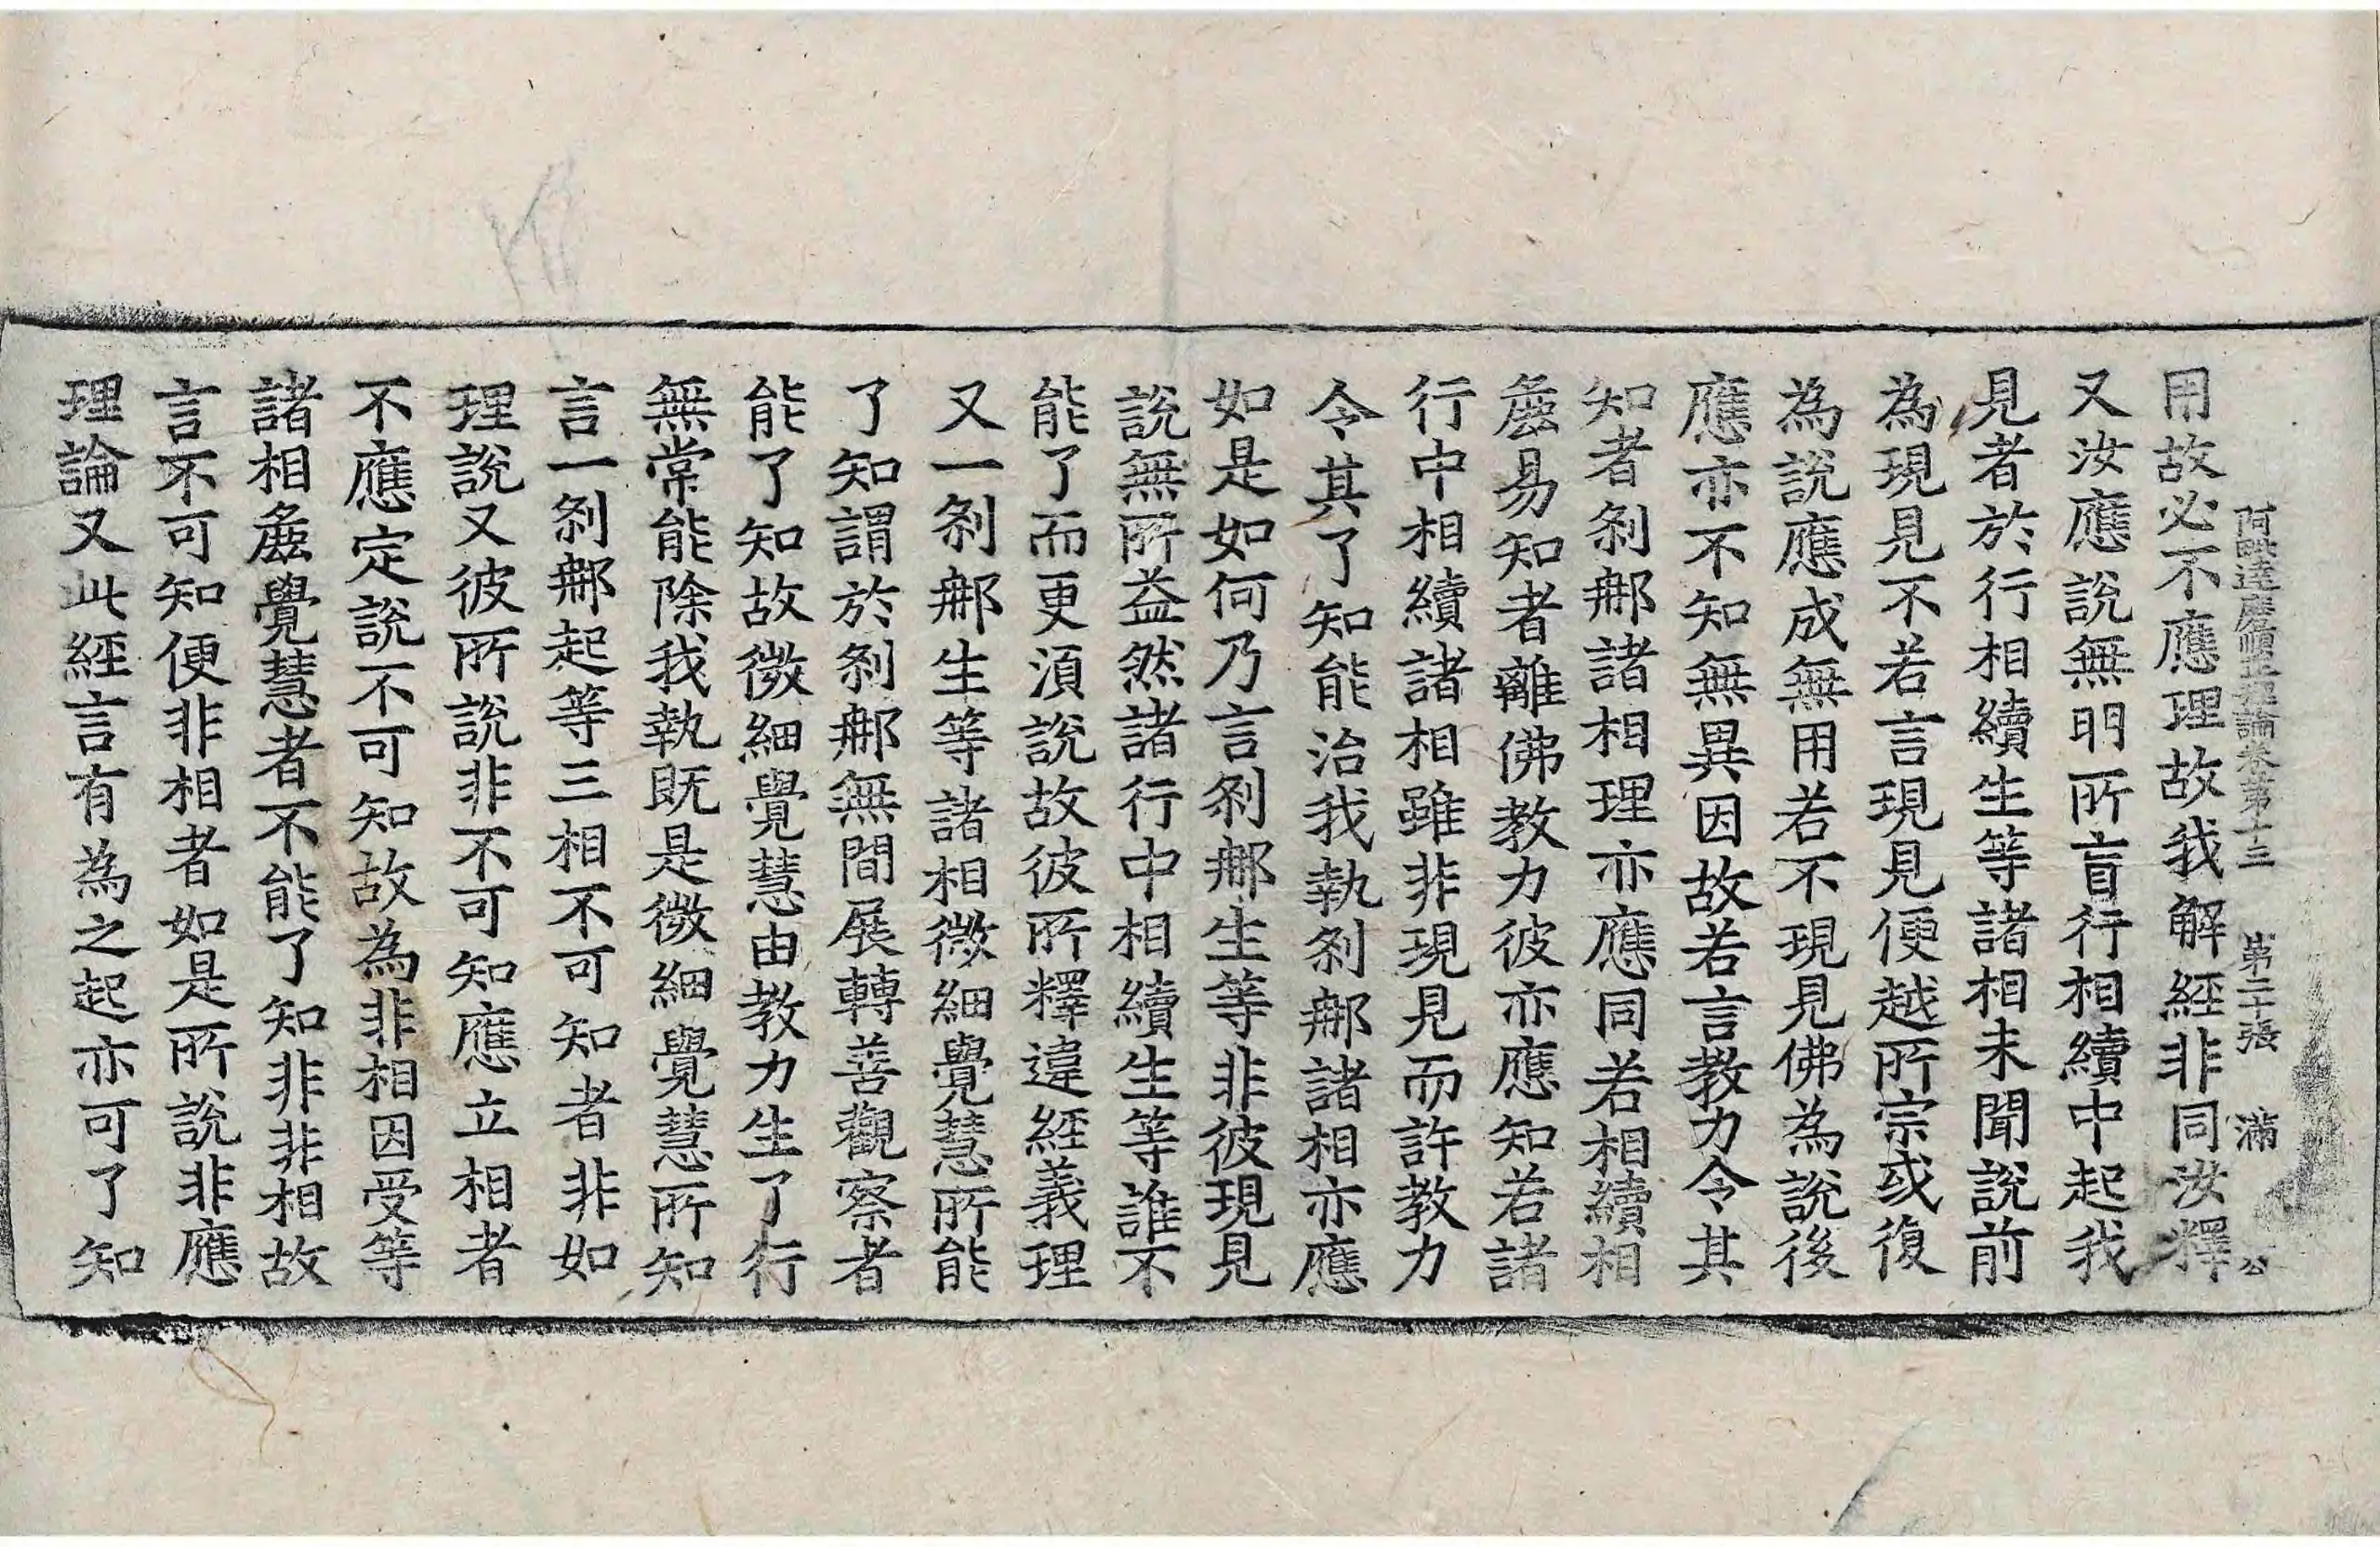 阿毗達磨順正理論卷第十三 第二十張 滿 公
用故必不應理故我解經非同汝釋
又汝應說無明所盲行相續中起我
見者於行相續生等諸相未聞說前
為現見不若言現見便越所宗或復
為說應成無用若不現見佛為說後
應亦不知無異因故若言教力令其
知者刹那諸相理亦應同若相續相
麁易知者離佛教力彼亦應知若諸
行中相續諸相雖非現見而許教力
令其了知能治我執刹那諸相亦應
如是如何乃言刹那生等非彼現見
說無所益然諸行中相續生等誰不
能了而更湏說故彼所釋違經義理
又一刹那生等諸相微細覺慧所能
了知謂於刹那無間展轉善觀察者
能了知故微細覺慧由教力生了行
無常能除我執既是微細覺慧所知
言一刹那起等三相不可知者非如
理說又彼所說非不可知應立相者
不應定說不可知故為非相因受等
諸相麁覺慧者不能了知非非相故
言不可知便非相者如是所說非應
理論又此經言有為之起亦可了知